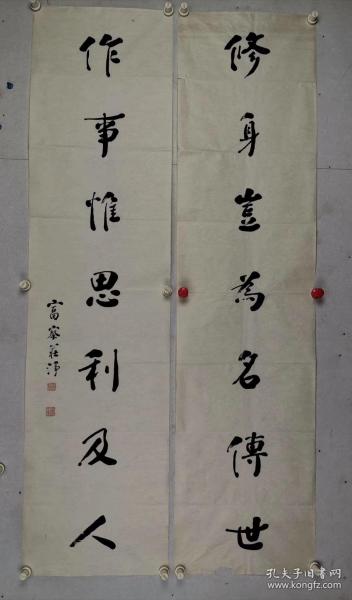 修身豈為名傳世
作事惟思利及人
富察莊淨
孔夫子旧书网